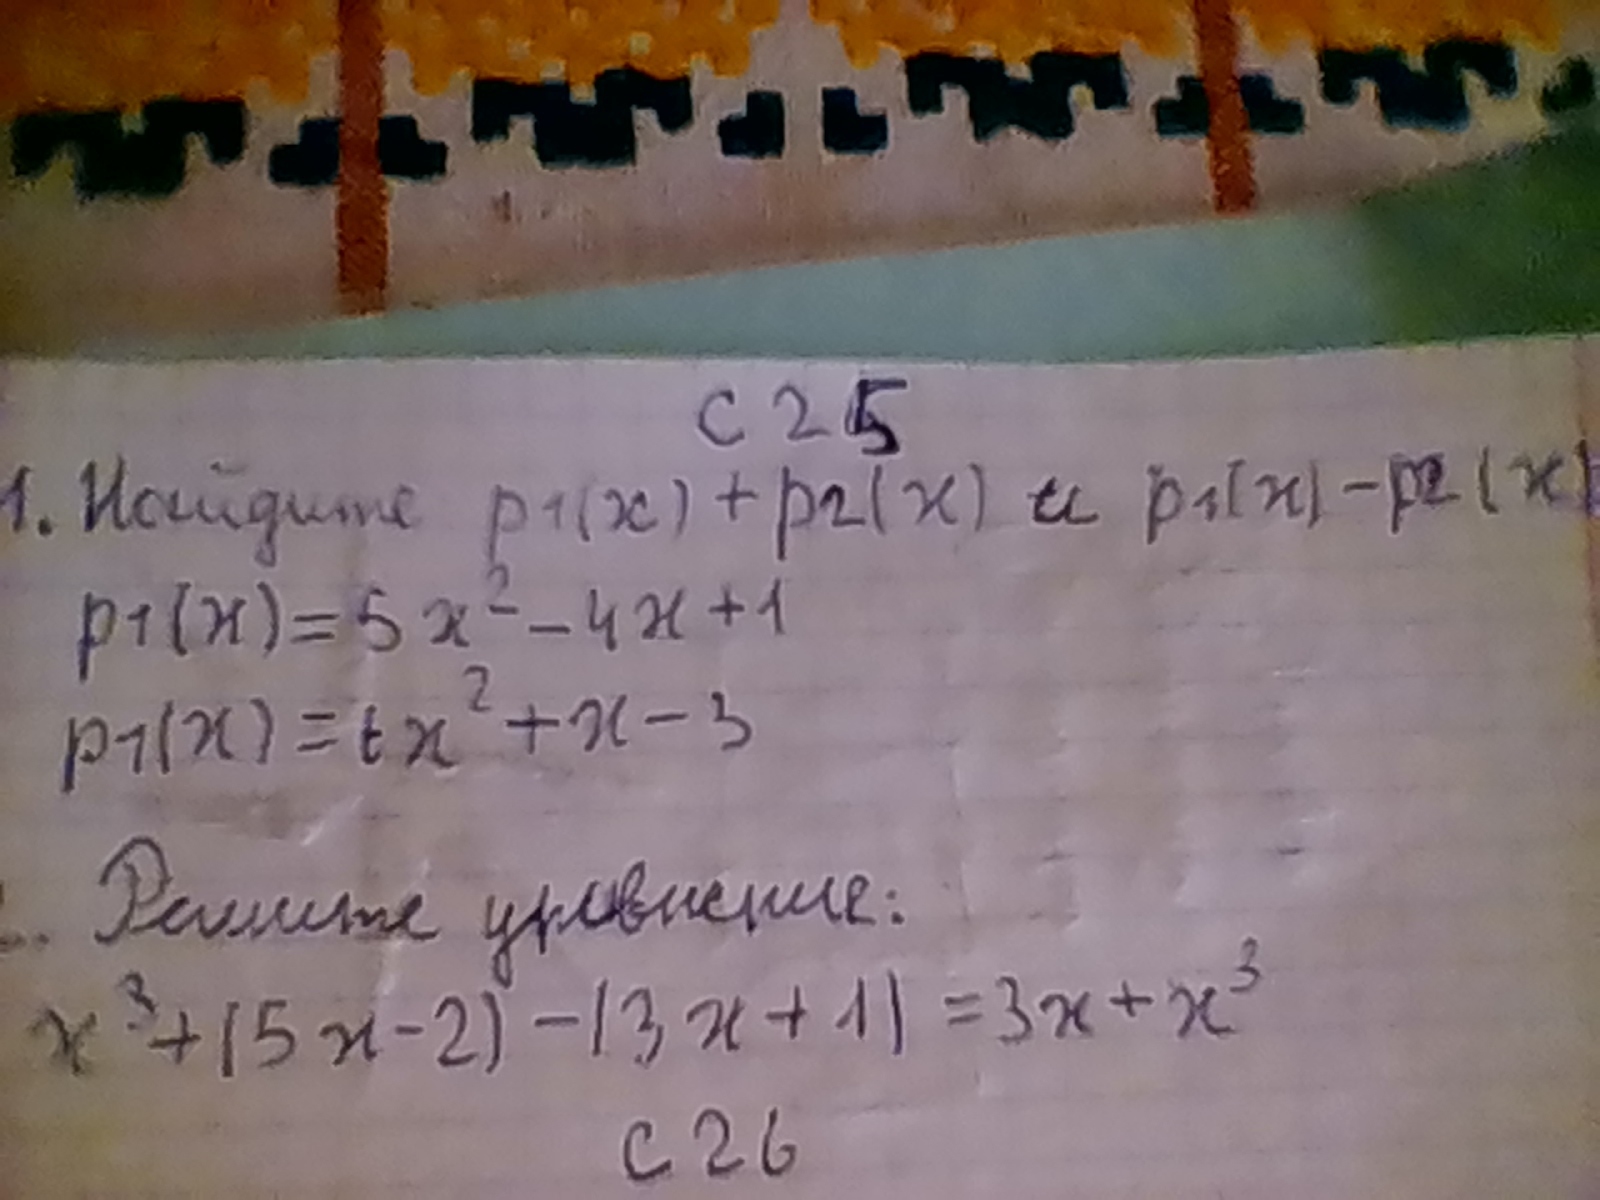 С 25
1. Найдите p1(x)+p2(x) и p1(x)-p2(x)
p1(x)=5x²-4x+1
p1(x)=tx²+x-3
Решите уравнение:
x³+(5x-2)-(3x+1)=3x+x³
С 26